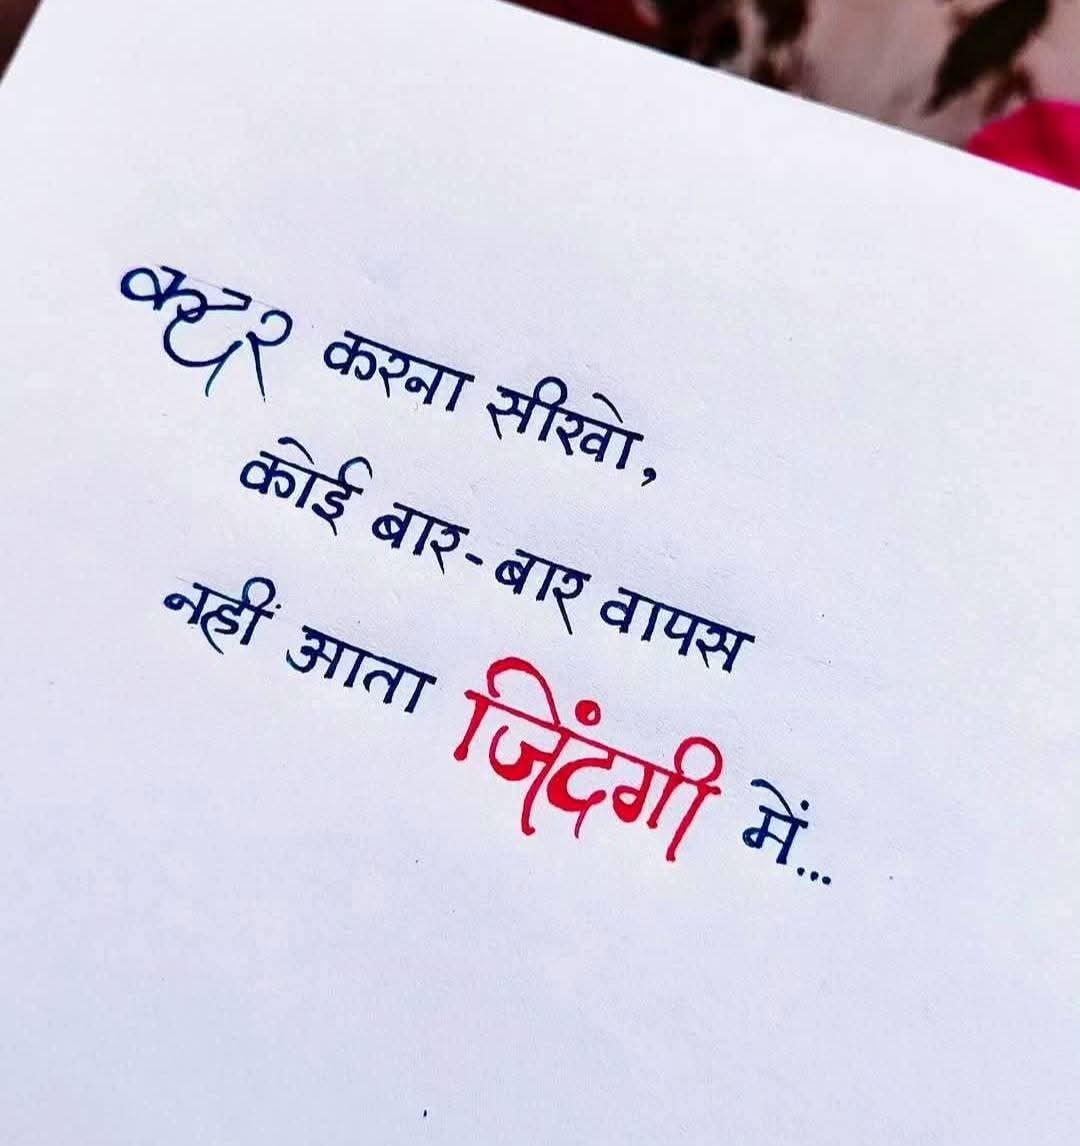 कदर करना सीखो,
कोई बार-बार वापस
नहीं आता जिंदगी में...